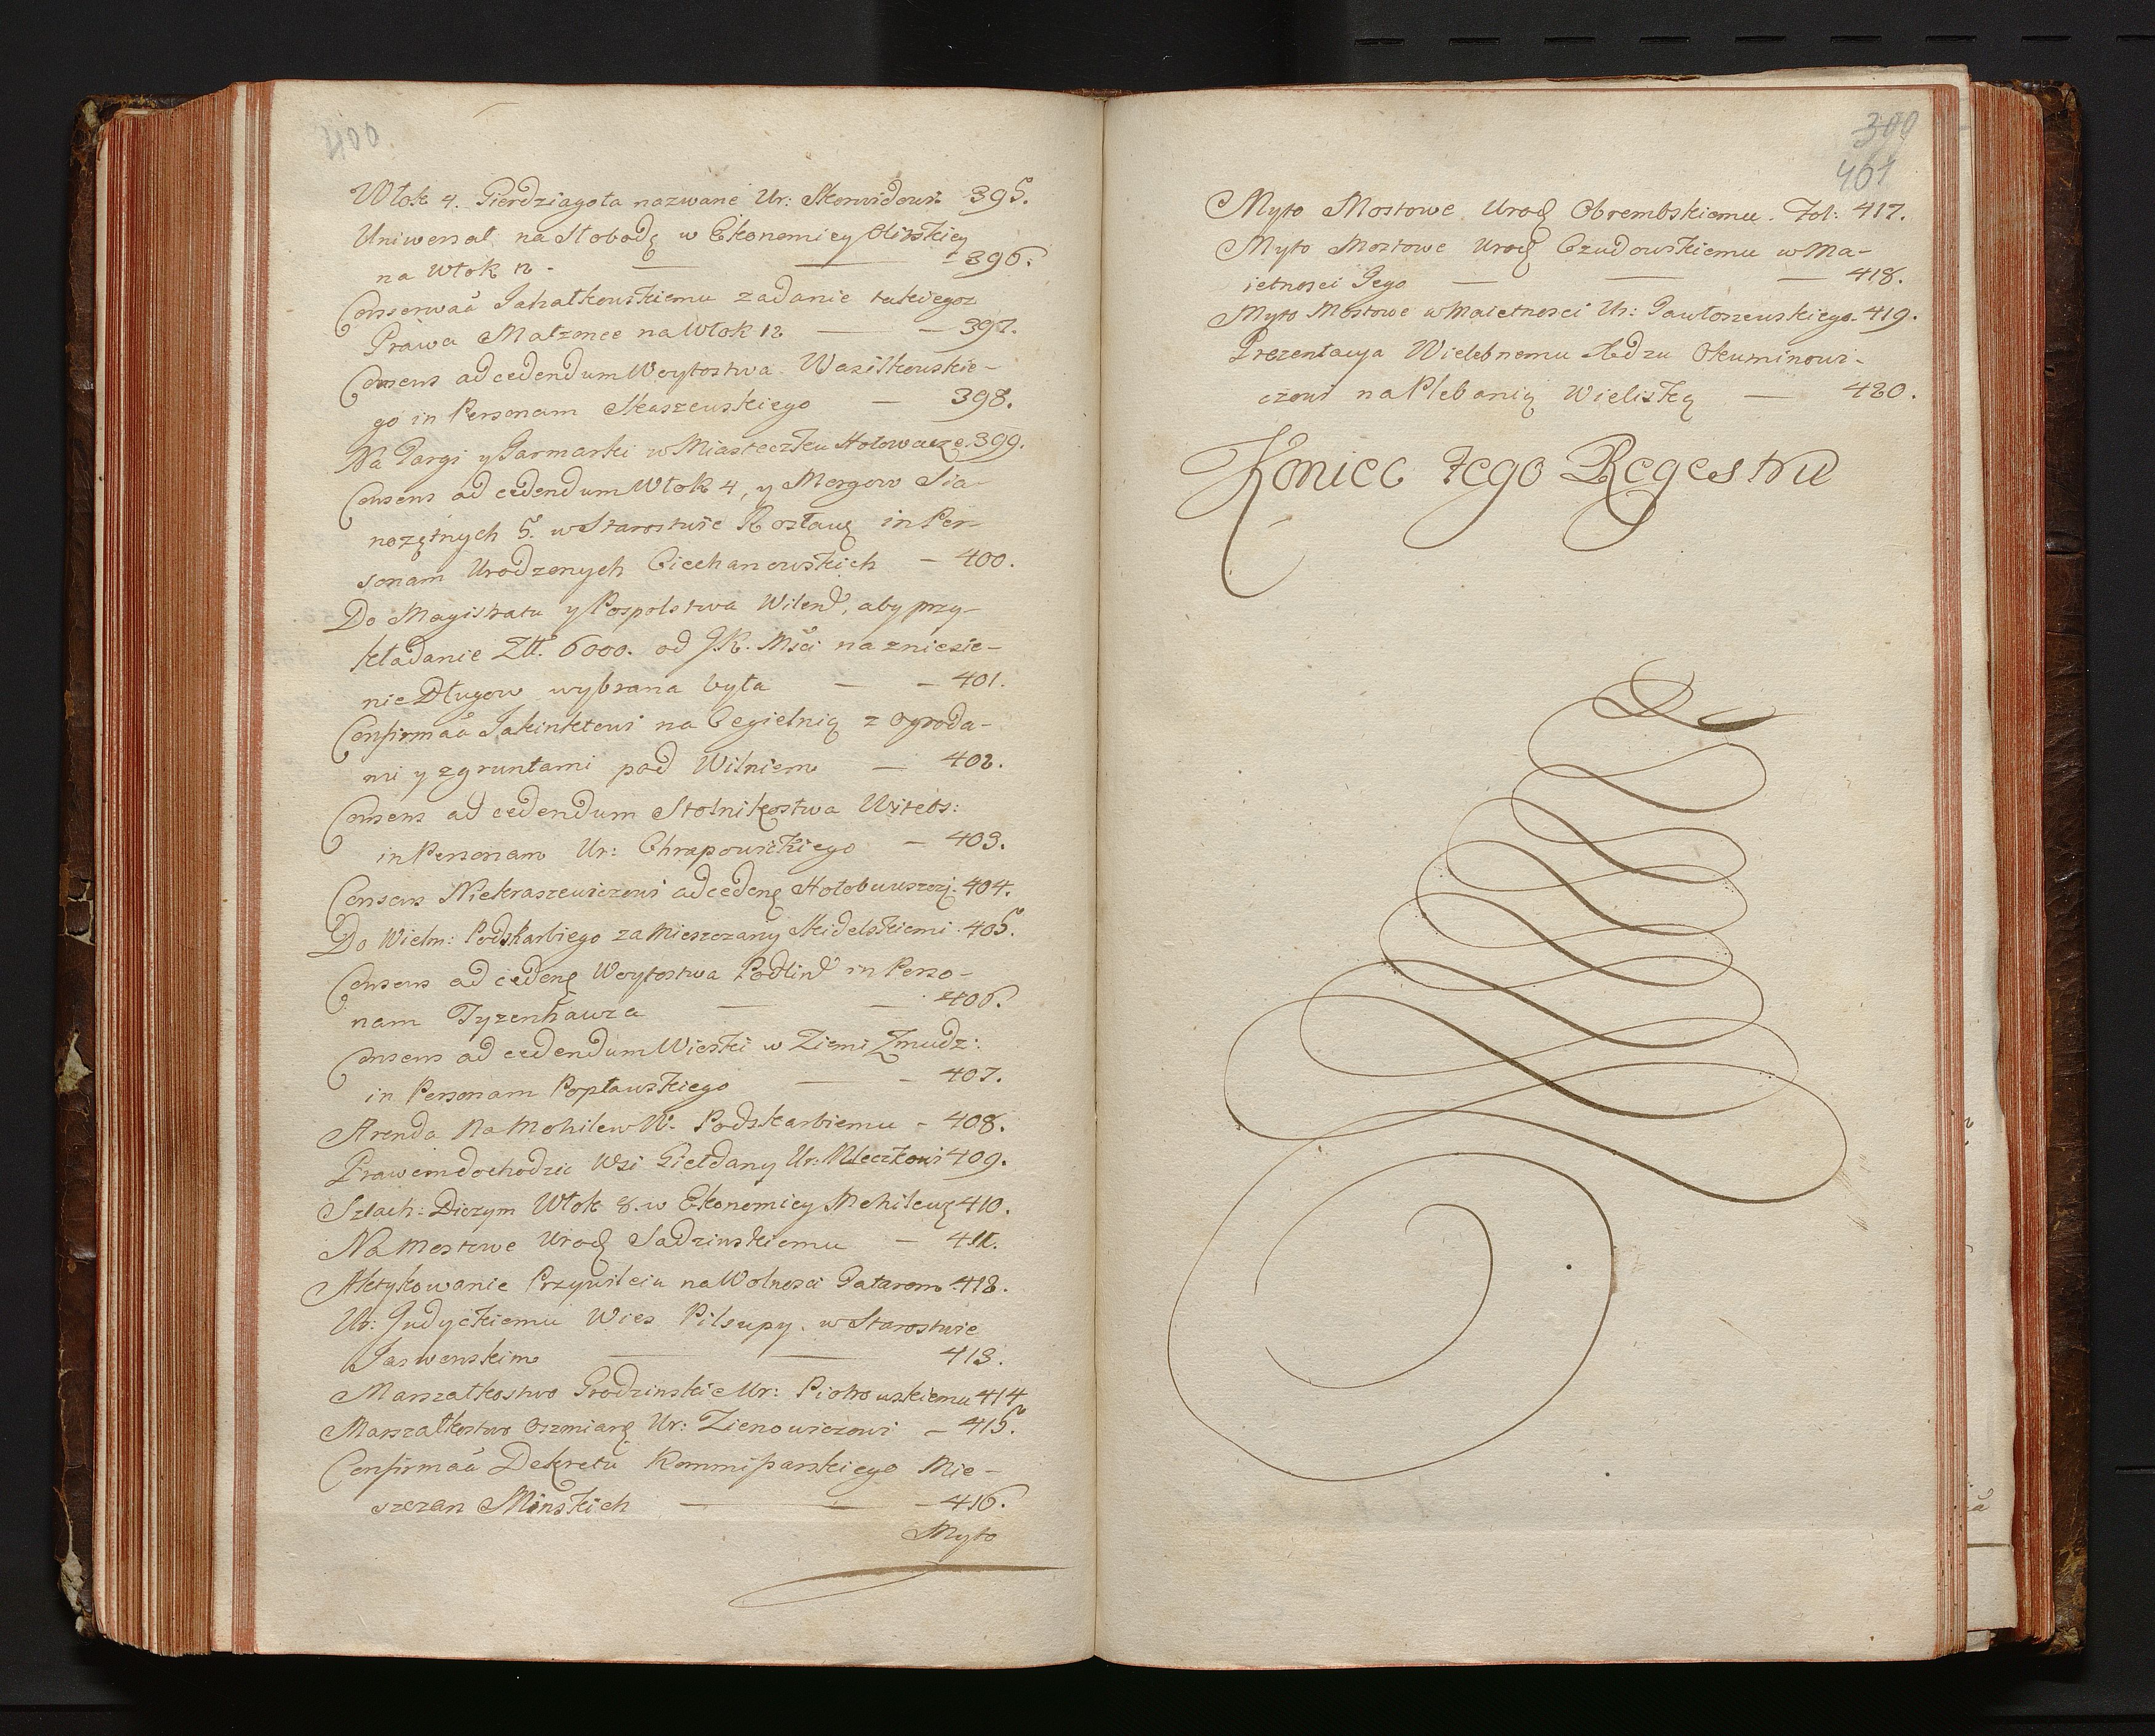 400
Włok 4. Pierdziagoła nazwane Ur: Skorwidowi 395.
Uniwersał na Słobodę w Ekonomiey Olitskiey
na Włok 12. — — 396.
Conserwaã Jahałkowskiemu zadanie takiegoz
Prawa Małzonce na Włok 12 — — 397.
Consens ad cedendum Woytostwa Wasilkowskie-
go in Personam Skaszewskiego — 398.
Na Targi y Jarmarki w Miasteczku Hołowacze. 399.
Consens ad cedendum Włok 4, y Morgow Sia-
nozętnych 5. w Starostwie Rosławę in Per-
sonam Urodzonych Ciechanowskich — 400.
Do Magistratu y Pospolstwa Wilend, aby przy-
kładanie Złł. 6000. od J.K. Mści na zniesie-
nie Długow wybrana była — — 401.
Confirmaã Jakinktowi na Cegielnią z ogroda-
mi y z gruntami pod Wilniem — 402.
Consens ad cedendum Stolnikostwa Witebs:
in Personam Ur: Chrapowickiego — 403.
Consens Niekraszewiczowi ad cedenę Hołobuwszczj. 404.
Do Wielm: Podskarbiego za Mieszczany Skidelskiemi. 405.
Consens ad cedenę Woytostwa Podlind in Perso-
nam Tyzenhawza — — 406.
Consens ad cedendum Wioski w Ziemi Zmudz:
in Personam Popławskiego — — 407.
Arenda Na Mohilew W: Podskarbiemu - 408.
Prawem dochodzic Wsi Giełdany Ur: Mleczkowi 409.
Szlach: Diczym Włok 8. w Ekonomiey Mohilewę 410.
Na Mostowe Urodę Sadzinskiemu — 411.
Aktykowanie Przywileiu na Wolnosci Tatarom. 412.
Ur: Judyckiemu Wies Pilsupy. w Starostwie
Jaswenskim — — 413.
Marszałkostwo Grodzinskie Ur: Piotrowskiemu 414
Marszałkostwo Oszmianę Ur: Zienowiczowi — 415.
Confirmaã Dekretu Kommissarskiego Mie-
szczan Minskich — — — 416.
Myto
401
Myto Mostowe Urodę Obrembskiemu. Fol: 417.
Myto Mostowe Urodę Czudowskiemu w Ma-
ietnosci Jego — — — 418.
Myto Mostowe w Maietnosci Ur: Pawłoszewskiego. 419.
Prezentacya Wielebnemu Xdzu Okuminowi-
czowi na Plebanią Wieliską — 420.
Koniec tego Regestru